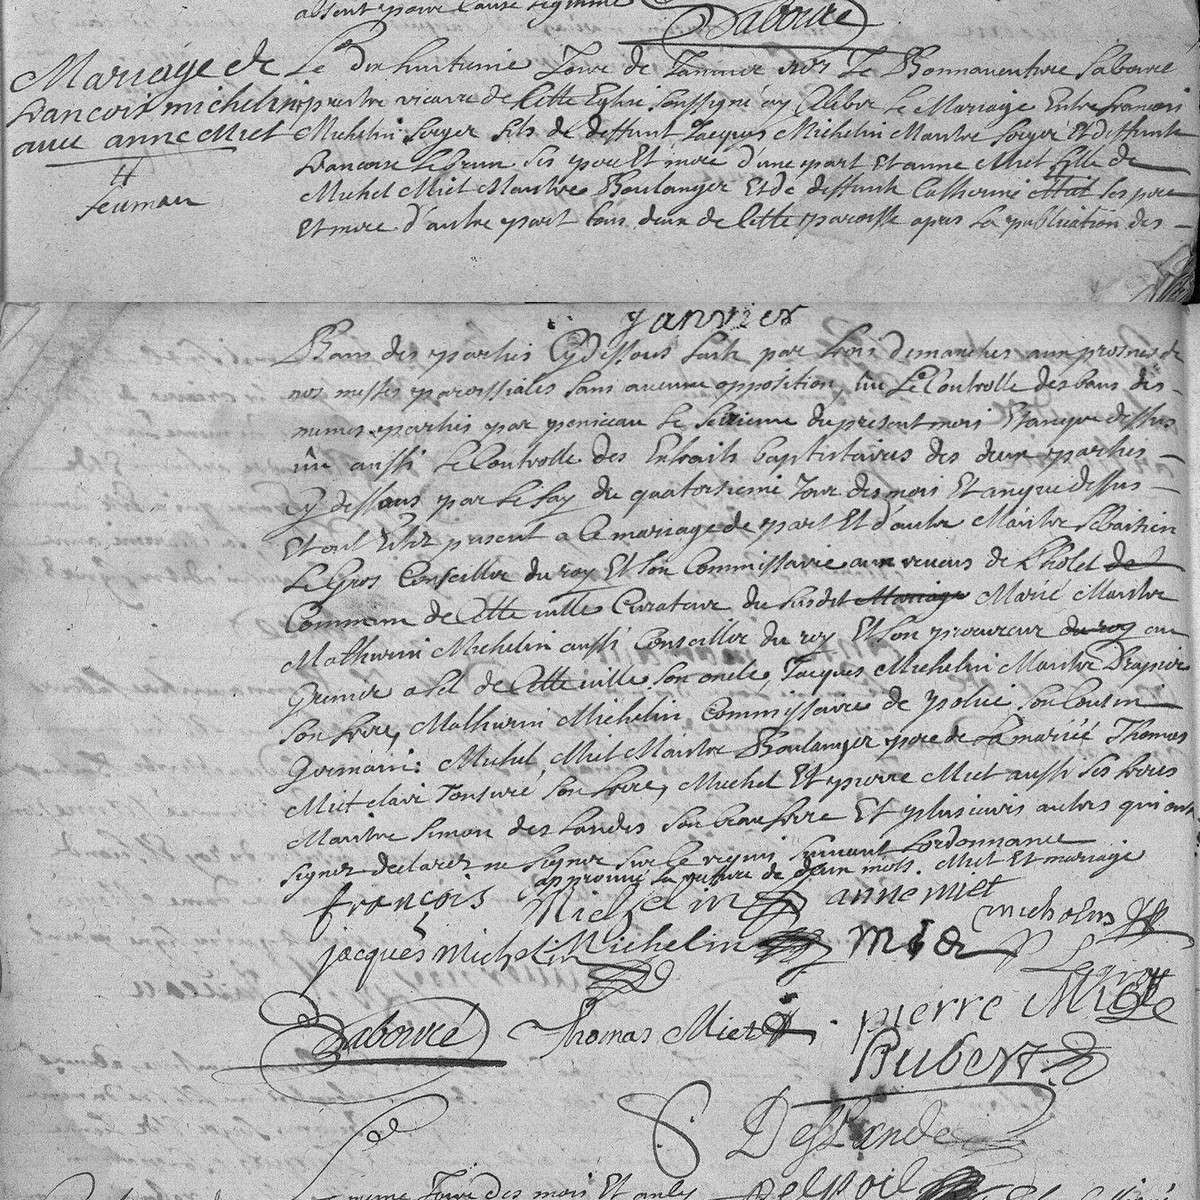 absent pour cause
Sabouré
Mariage de
francois michelin
avec anne Miet
Le Dix huitieme Jour de Janvier Je Bonnaventure Sabouré
prestre vicaire de Cette Eglise soussigné ay Celebre Le Mariage Entre francois
Michelin Serger fils de deffunt Jacques Michelin Maistre Serger Et deffunte
francoise Le brun ses pere Et mere d'une part Et anne Miet fille de
Michel Miet Maistre Boulanger Et de deffunte Catherine Miet ses pere
Et mere d'autre part tous deux de Cette paroisse apres La publication des
Janvier
Bans des parties Cy dessous faite par trois dimanches aux prosnes de
nos messes paroissiales sans aucune opposition, vû Le Controlle des bans des
mesmes parties par peniceau Le Seizieme du present mois Et an que dessus
vû aussi Le Controlle des Extraits baptistaires des deux parties
Cy dessous par Le fay du quatorsieme Jour des mois Et an que dessus
Et ont Esté present a Ce mariage de part Et d'autre Maistre Sebastien
Le Gros Conseiller du roy Et son Commissaire aux reveues de L'hotel de
Commun de Cette ville Curateur du susdit Mariage Marié Maistre
Mathurin Michelin aussi Conseiller du roy Et son procureur du roy au
Grenier a sel de Cette ville son oncle, Jacques Michelin Maistre Drapier
son frere, Mathurin Michelin Commissaire de police son Cousin
Germain: Michel Miet Maistre Boulanger pere de La mariée Thomas
Miet clerc Tonsuré son frere, Michel Et pierre Miet aussi ses freres
Maistre Simon des Landes son beau frere Et plusieurs autres qui ont
signez declarez ne signer sur Le requis suivant L'ordonnance
approuvé La rature de deux mots. Miet Et mariage
françois Michelin anne miet
jacques Michelin Michelin Miet
Sabouré Thomas Miet pierre Miet
Rubert
DesLandes
Jour des mois Et an